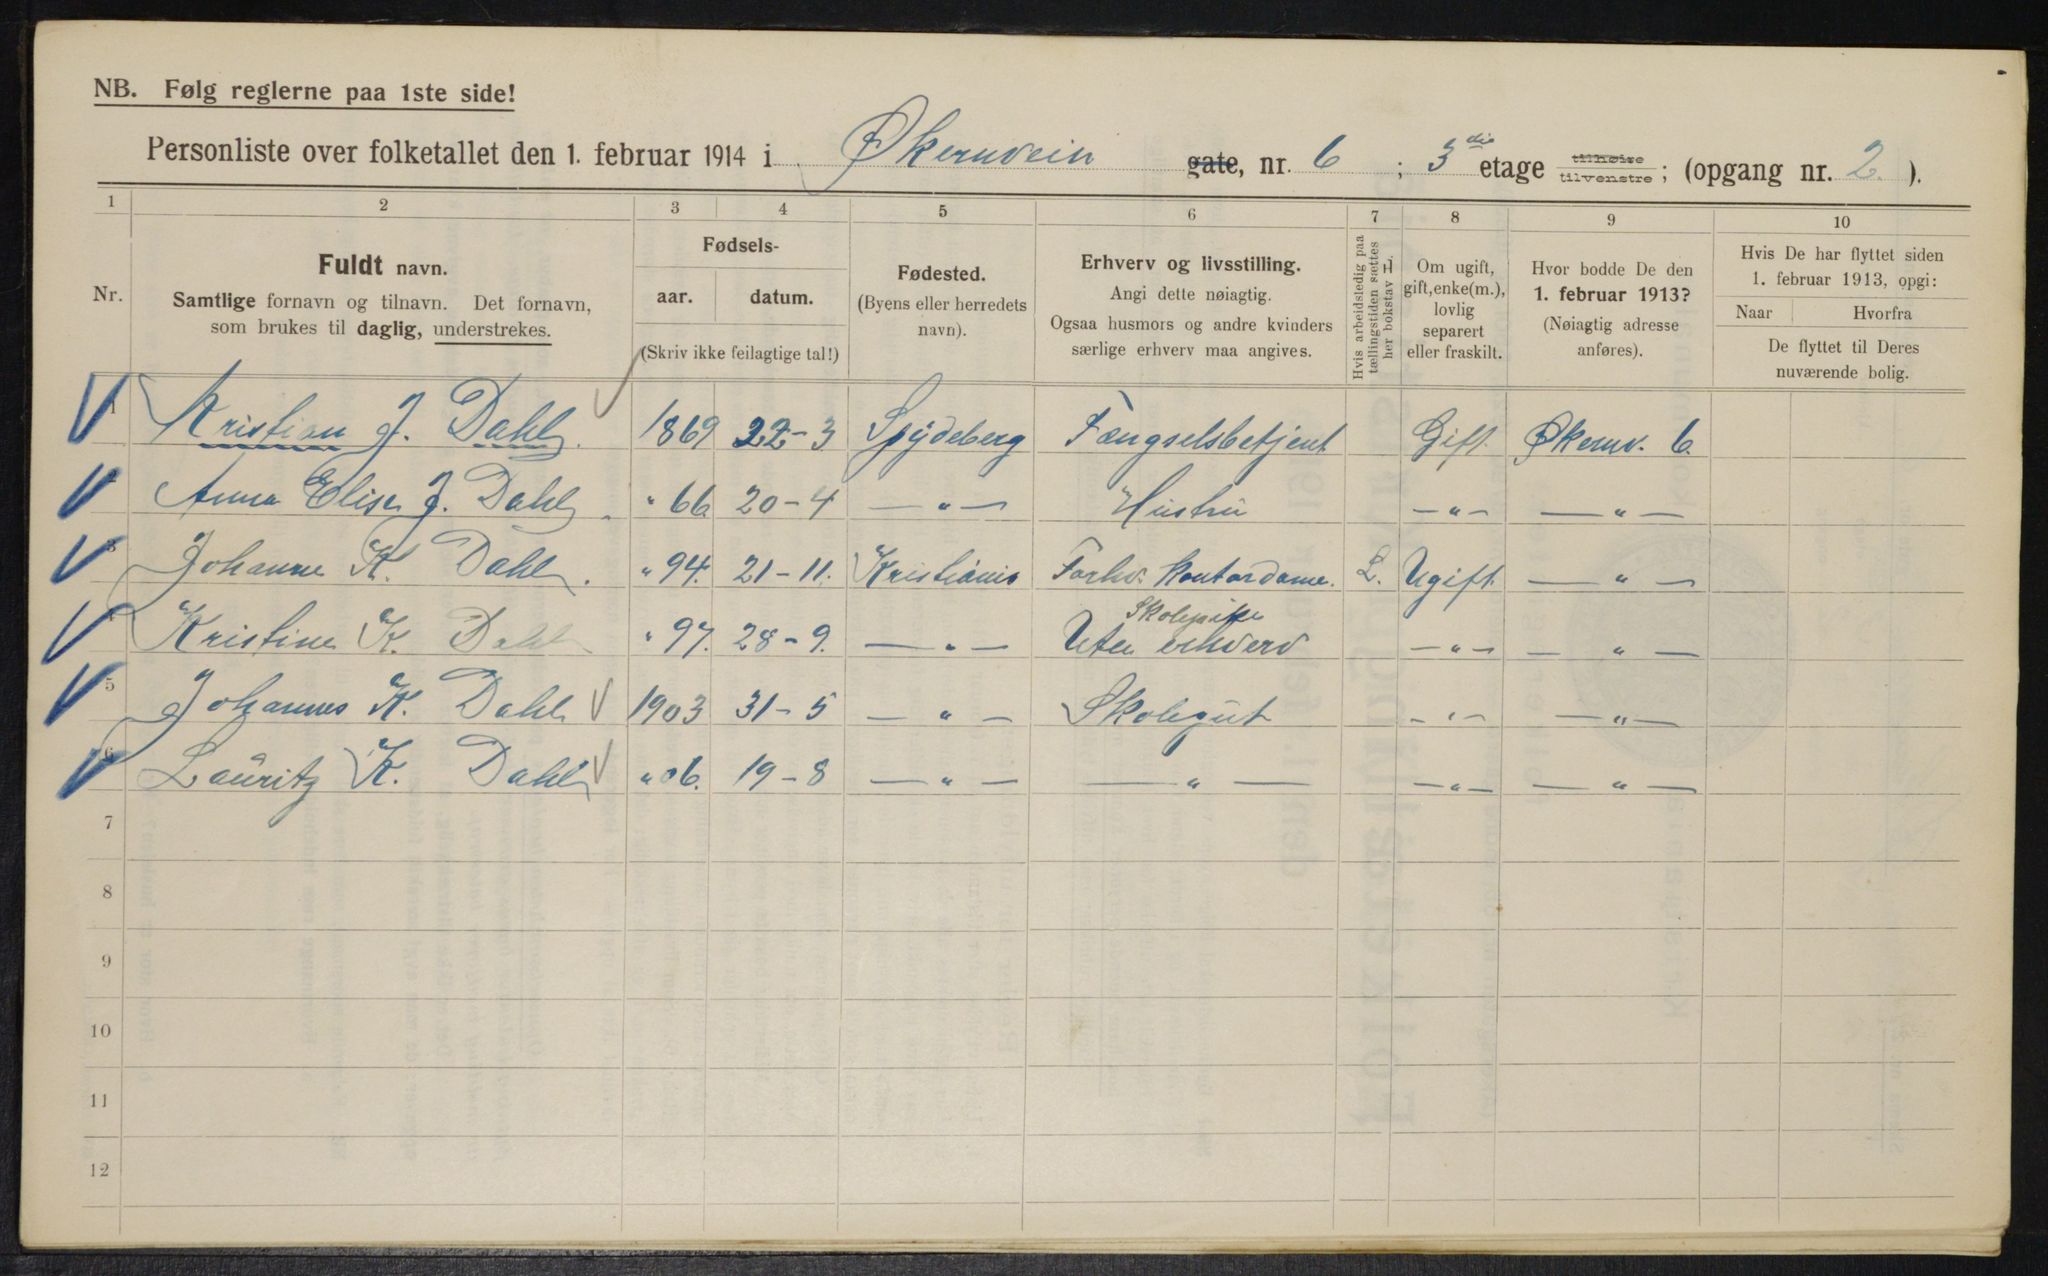 NB. Følg reglerne paa 1ste side!
Personliste over folketallet den 1. februar 1914 i Økernvein gate, nr. 6 ; 3die etage tilhøire tilvenstre ; (opgang nr. 2. ).
1 2 3 4 5 6 7 8 9 10
Nr.
Fuldt navn.
Samtlige fornavn og tilnavn. Det fornavn,
som brukes til daglig, understrekes.
Fødsels-
aar. datum.
(Skriv ikke feilagtige tal!)
Fødested.
(Byens eller herredets
navn).
Erhverv og livsstilling.
Angi dette nøiagtig.
Ogsaa husmors og andre kvinders
særlige erhverv maa angives.
Hvis arbeidsledig paa
tællingstiden sættes
her bokstav L.
Om ugift,
gift, enke(m.),
lovlig
separert
eller fraskilt.
Hvor bodde De den
1. februar 1913?
(Nøiagtig adresse
anføres).
Hvis De har flyttet siden
1. februar 1913, opgi:
Naar Hvorfra
De flyttet til Deres
nuværende bolig.
1 Kristian J. Dahl. 1869 22-3 Spydeberg Fængselsbetjent Gift. Økernv. 6.
2 Anna Elise J. Dahl. " 66 20-4 — " — Hustru — " — — " —
3 Johanne K. Dahl. " 94. 21-11. Kristiania Forhv. kontordame. L. Ugift. — " —
Skolepike
4 Kristine K. Dahl " 97. 28-9. — " — Uten erhverv — " — — " —
5 Johannes K. Dahl 1903 31-5 — " — Skolegut — " — — " —
6 Lauritz K. Dahl " 06. 19-8 — " — — " — — " — — " —
7
8
9
10
11
12